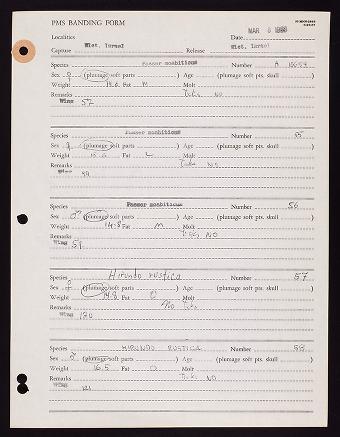 PMS BANDING FORM
Localities Date MAR 8
Capture Mist. Israel Release Mist. Israel
Species Passer moabiticus Number A
Sex ♀ (plumage soft parts ) Age (plumage soft pts. skull )
Weight Fat M Molt
Remarks Ticks NO
Wing 57
Species Passer moabiticus Number 55
Sex ♀ (plumage soft parts ) Age (plumage soft pts. skull )
Weight Fat L Molt
Remarks Ticks NO
Wing 59
Species Passer moabiticus Number 56
Sex ♂ (plumage soft parts ) Age (plumage soft pts. skull )
Weight 14.8 Fat M Molt
Remarks Ticks NO
Wing
Species Hirundo rustica Number 57
Sex ♀ (plumage soft parts ) Age (plumage soft pts. skull )
Weight Fat O Molt
Remarks No Ticks
Wing 120
Species HIRUNDO RUSTICA Number 58
Sex ♂ (plumage soft parts ) Age (plumage soft pts. skull )
Weight 16.5 Fat O Molt
Remarks Ticks NO
Wing 121